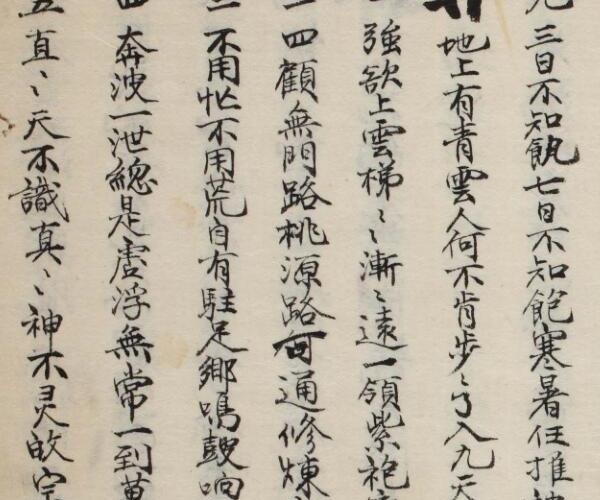 九 三日不知飢七日不知飽寒暑任推
地上有青雲人何不肯步〻了入九天
強欲上雲梯〻漸〻遠一領紫袍
一 四顧無門路桃源路何通修煉
二 不用忙不用荒自有駐足鄉鳴鼓响
四 奔波一泄總是虛浮無常一到萬
五 直〻天不識真〻神不灵故宗